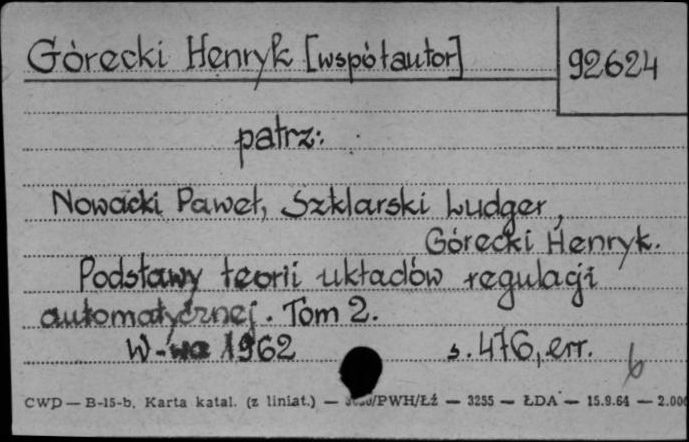 Górecki Henryk [współautor]
92624
patrz:
Nowacki Paweł, Szklarski Ludger,
Górecki Henryk.
Podstawy teorii układów regulacji
automatycznej. Tom 2.
W-wa 1962 s. 476, err.
CWD — B-15-b, Karta katal. (z liniat.) — /PWH/Łź — 3255 — ŁDA — 15.9.64 — 2.000